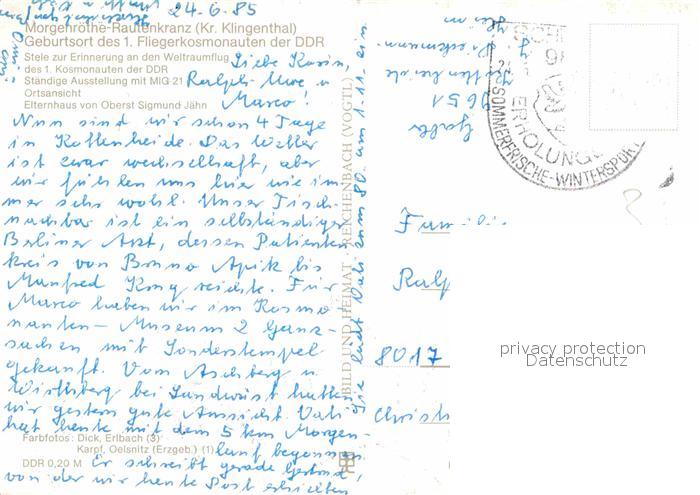 24-6.85
Morgenröthe-Rautenkranz (Kr. Klingenthal)
Geburtsort des 1. Fliegerkosmonauten der DDR
Stele zur Erinnerung an den Weltraumflug
des 1. Kosmonauten der DDR
Ständige Ausstellung mit MIG 21
Ortsansicht
Elternhaus von Oberst Sigmund Jähn
Liebe Karin,
Ralph-Uwe u
Marco!
Nun sind wir schon 4 Tage
in Kottenheide. Das Wetter
ist zwar wechselhaft, aber
wir fühlen uns hier wie im
mer sehr wohl. Unser Tisch-
nachbar ist ein selbständiger
Berliner Arzt, dessen Patienten
kreis von Bruno Apitz bis
Manfred Krug reichte. Für
Marco haben wir im Kosmo
nauten-Museum 2 Ganz-
sachen mit Sonderstempel
gekauft. Vom Aschberg u
Wirtsberg bei Landwüst hatten
wir gestern gute Aussicht. Vati
hat heute mit dem 5 km Morgen-
lauf begonnen
Er schreibt gerade Gertrud,
von der wir heute Post erhielten
Farbfotos: Dick, Erlbach (3)
Karpf, Oelsnitz (Erzgeb.) (1)
DDR 0,20 M
BILD UND HEIMAT · REICHENBACH (VOGTL)
Sie lädt Vati zum 80. am 1.11. ein
Kottenheide
9651
ERHOLUNGS
SOMMERFRISCHE-WINTERSPORT
Famili
Ralp
8017
Christ
privacy protection
Datenschutz